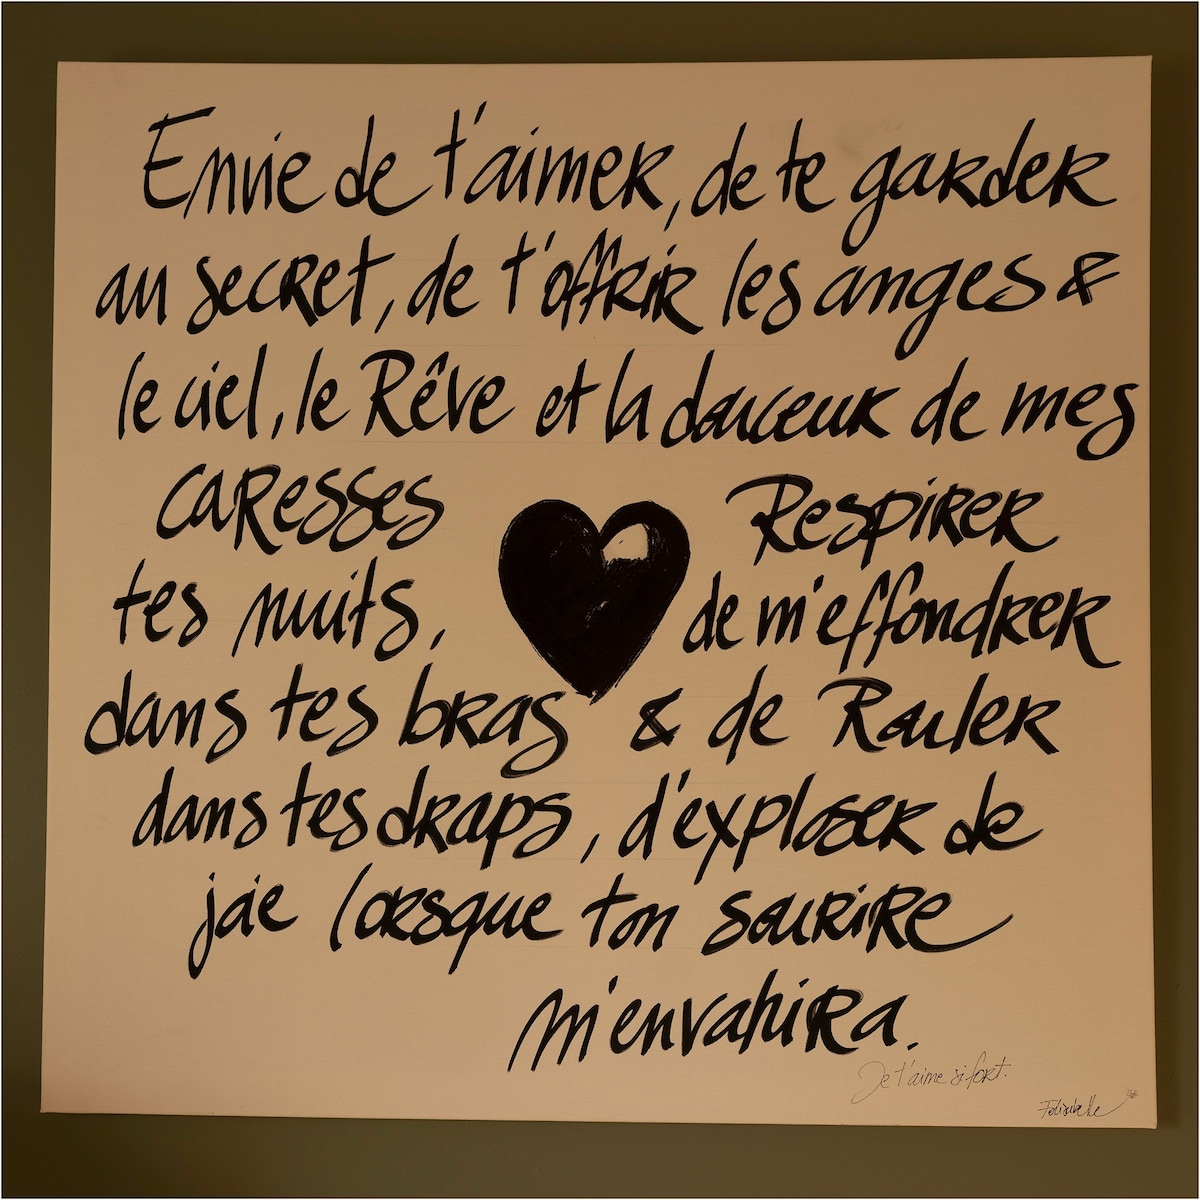 Envie de t'aimer, de te garder
au secret, de t'offrir les anges &
le ciel, le Rêve et la douceur de mes
caresses Respirer
tes nuits, de m'effondrer
dans tes bras & de Rouler
dans tes draps, d'exploser de
joie lorsque ton sourire
m'envahira.
Je t'aime si fort.